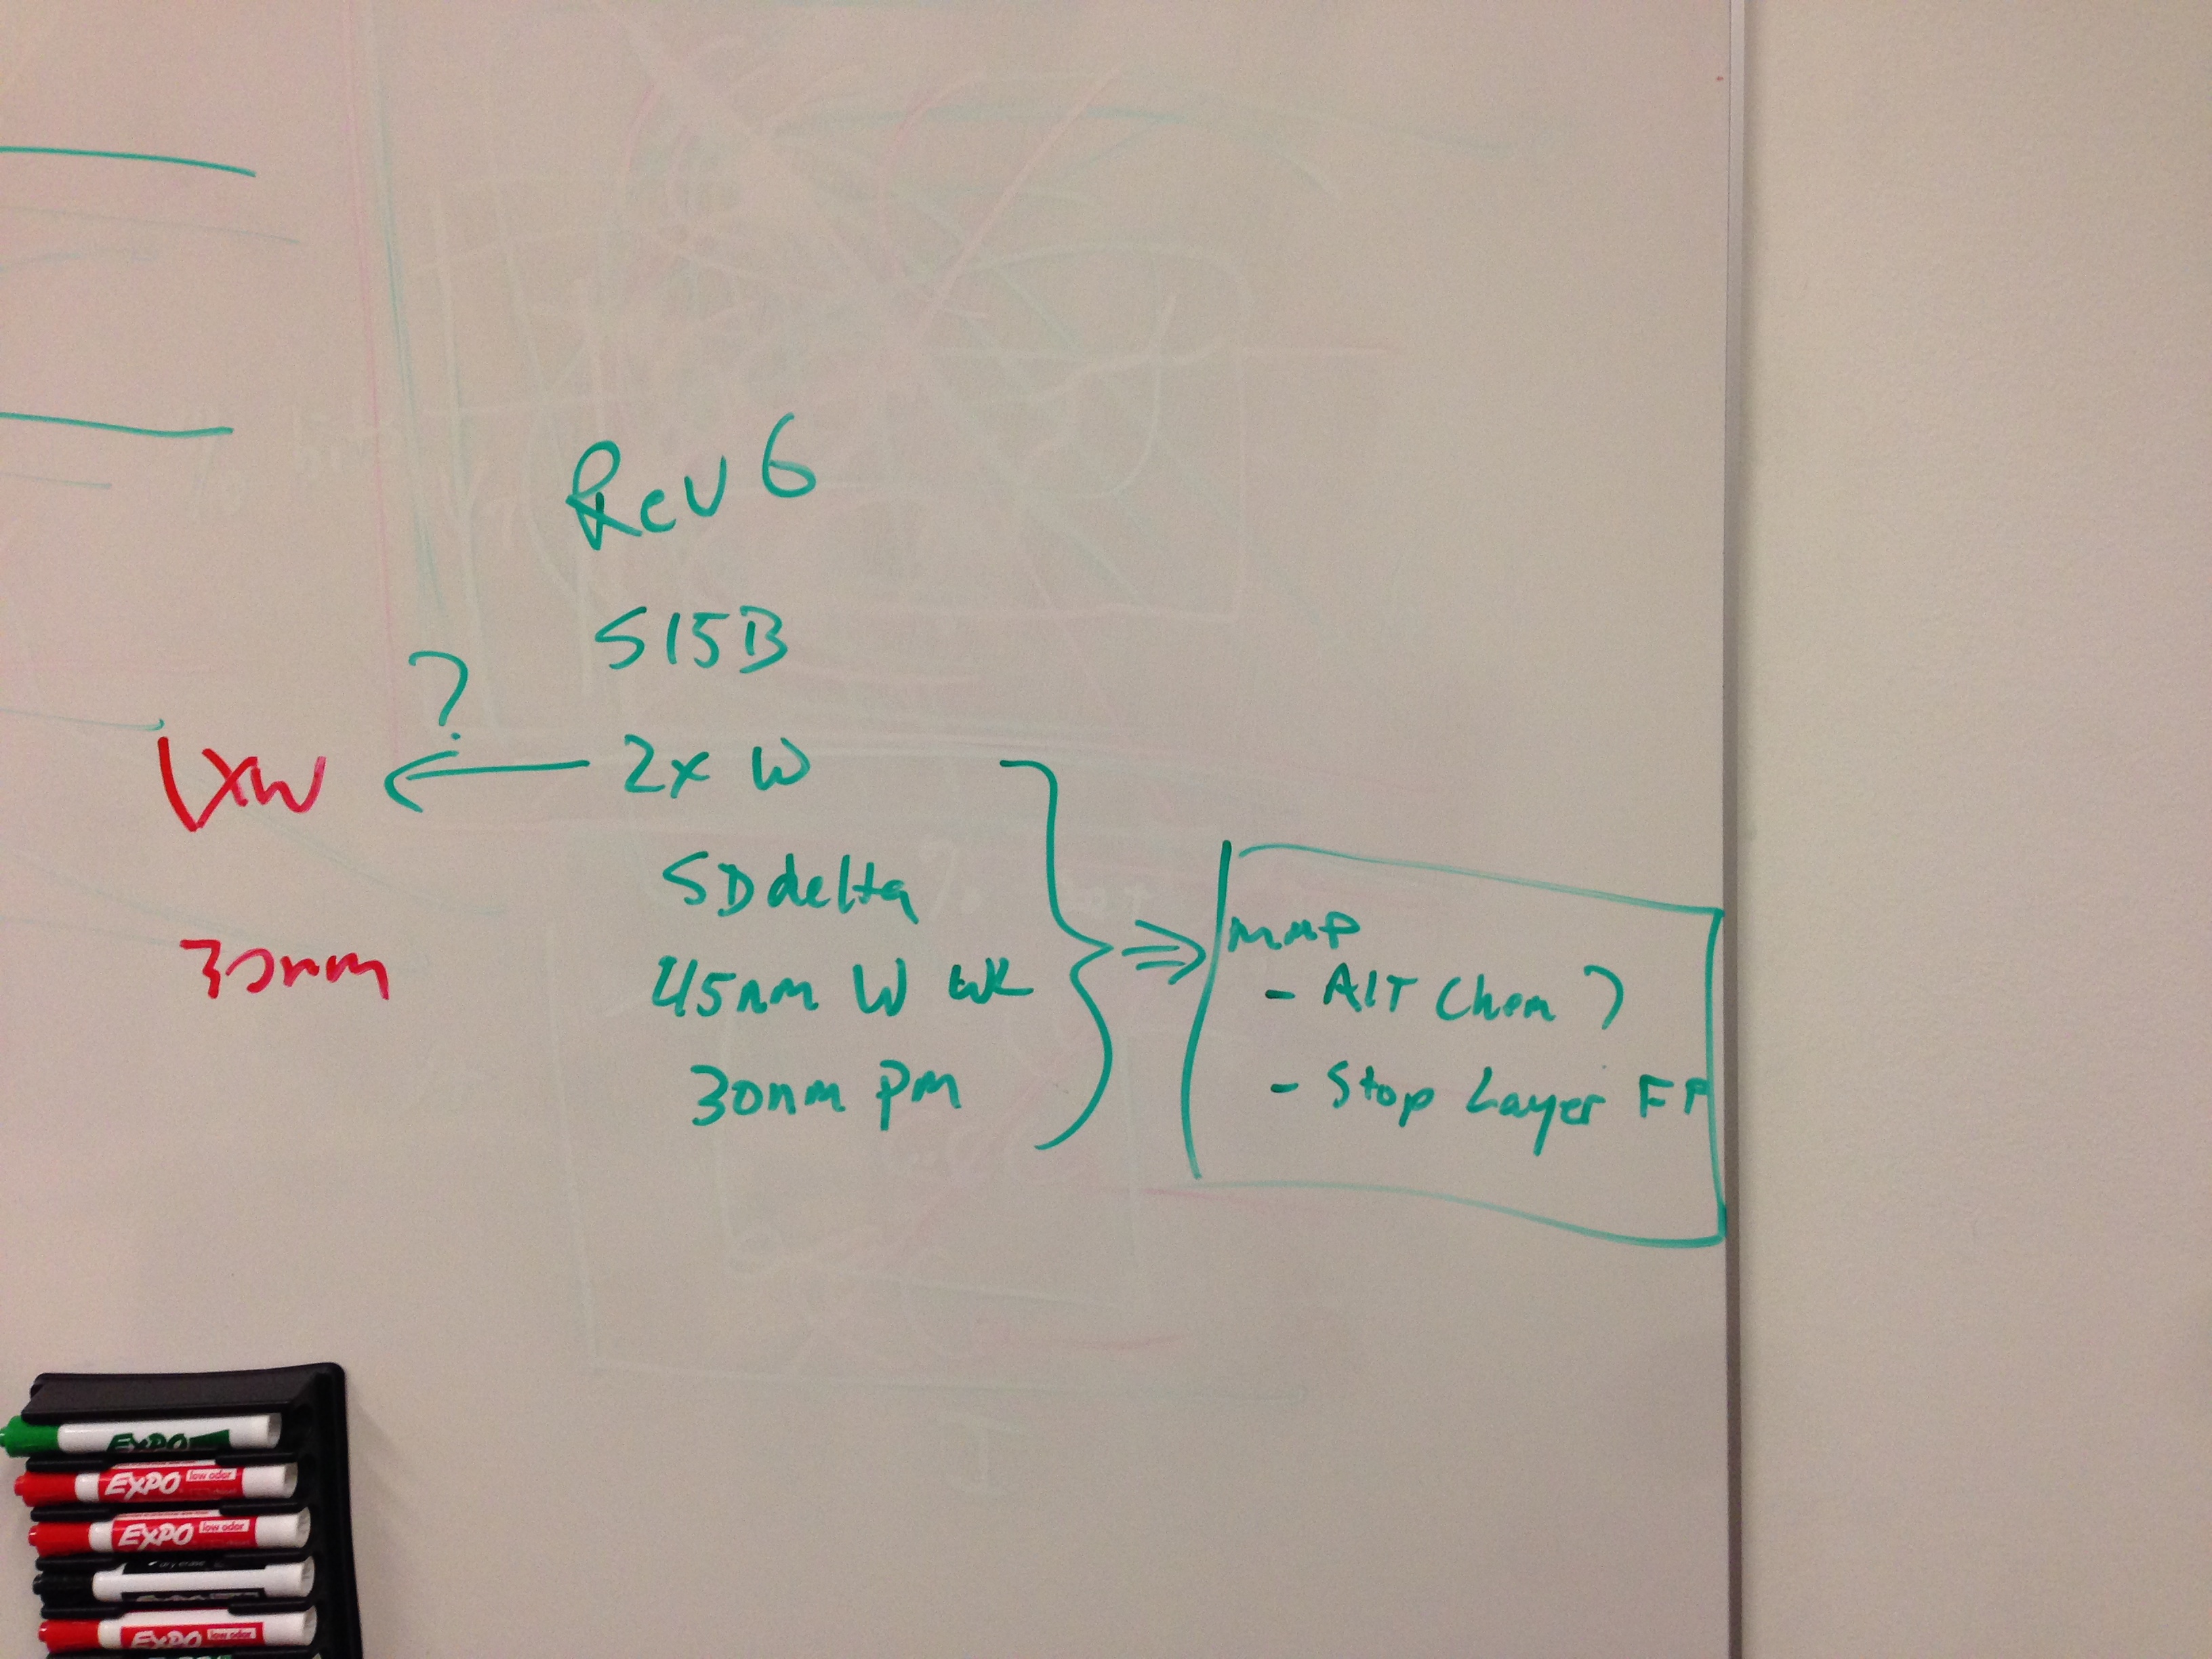 Rev 6
S15B
?
1xW
2x W
SD delta
30nm
45nm W
30nm PM
MMP
- AlT Chem ?
- Stop Layer FF
EXPO
EXPO low odor
EXPO low odor
EXPO low odor